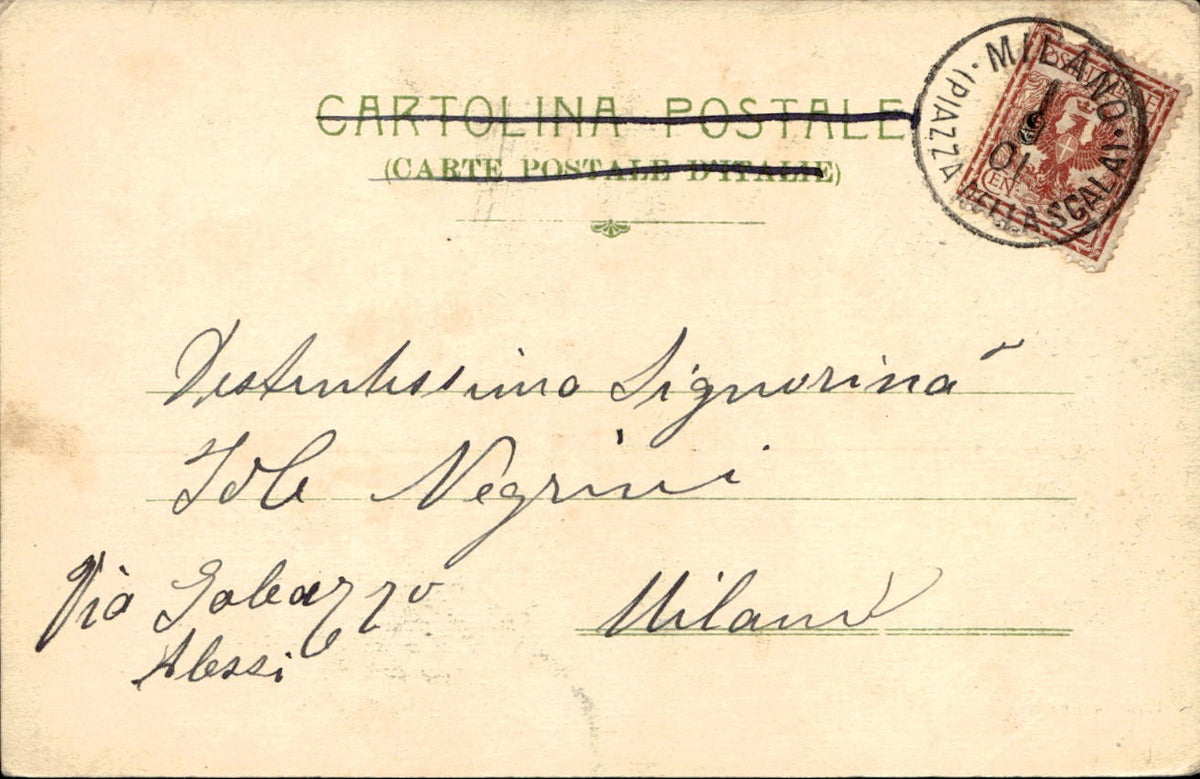 CARTOLINA POSTALE
(CARTE POSTALE D'ITALIE)
MILANO
(PIAZZA DELLA SCALA)
POSTE ITALIANE
Distintissima Signorina
Iole Negrini
Via Galeazzo
Alessi
Milano